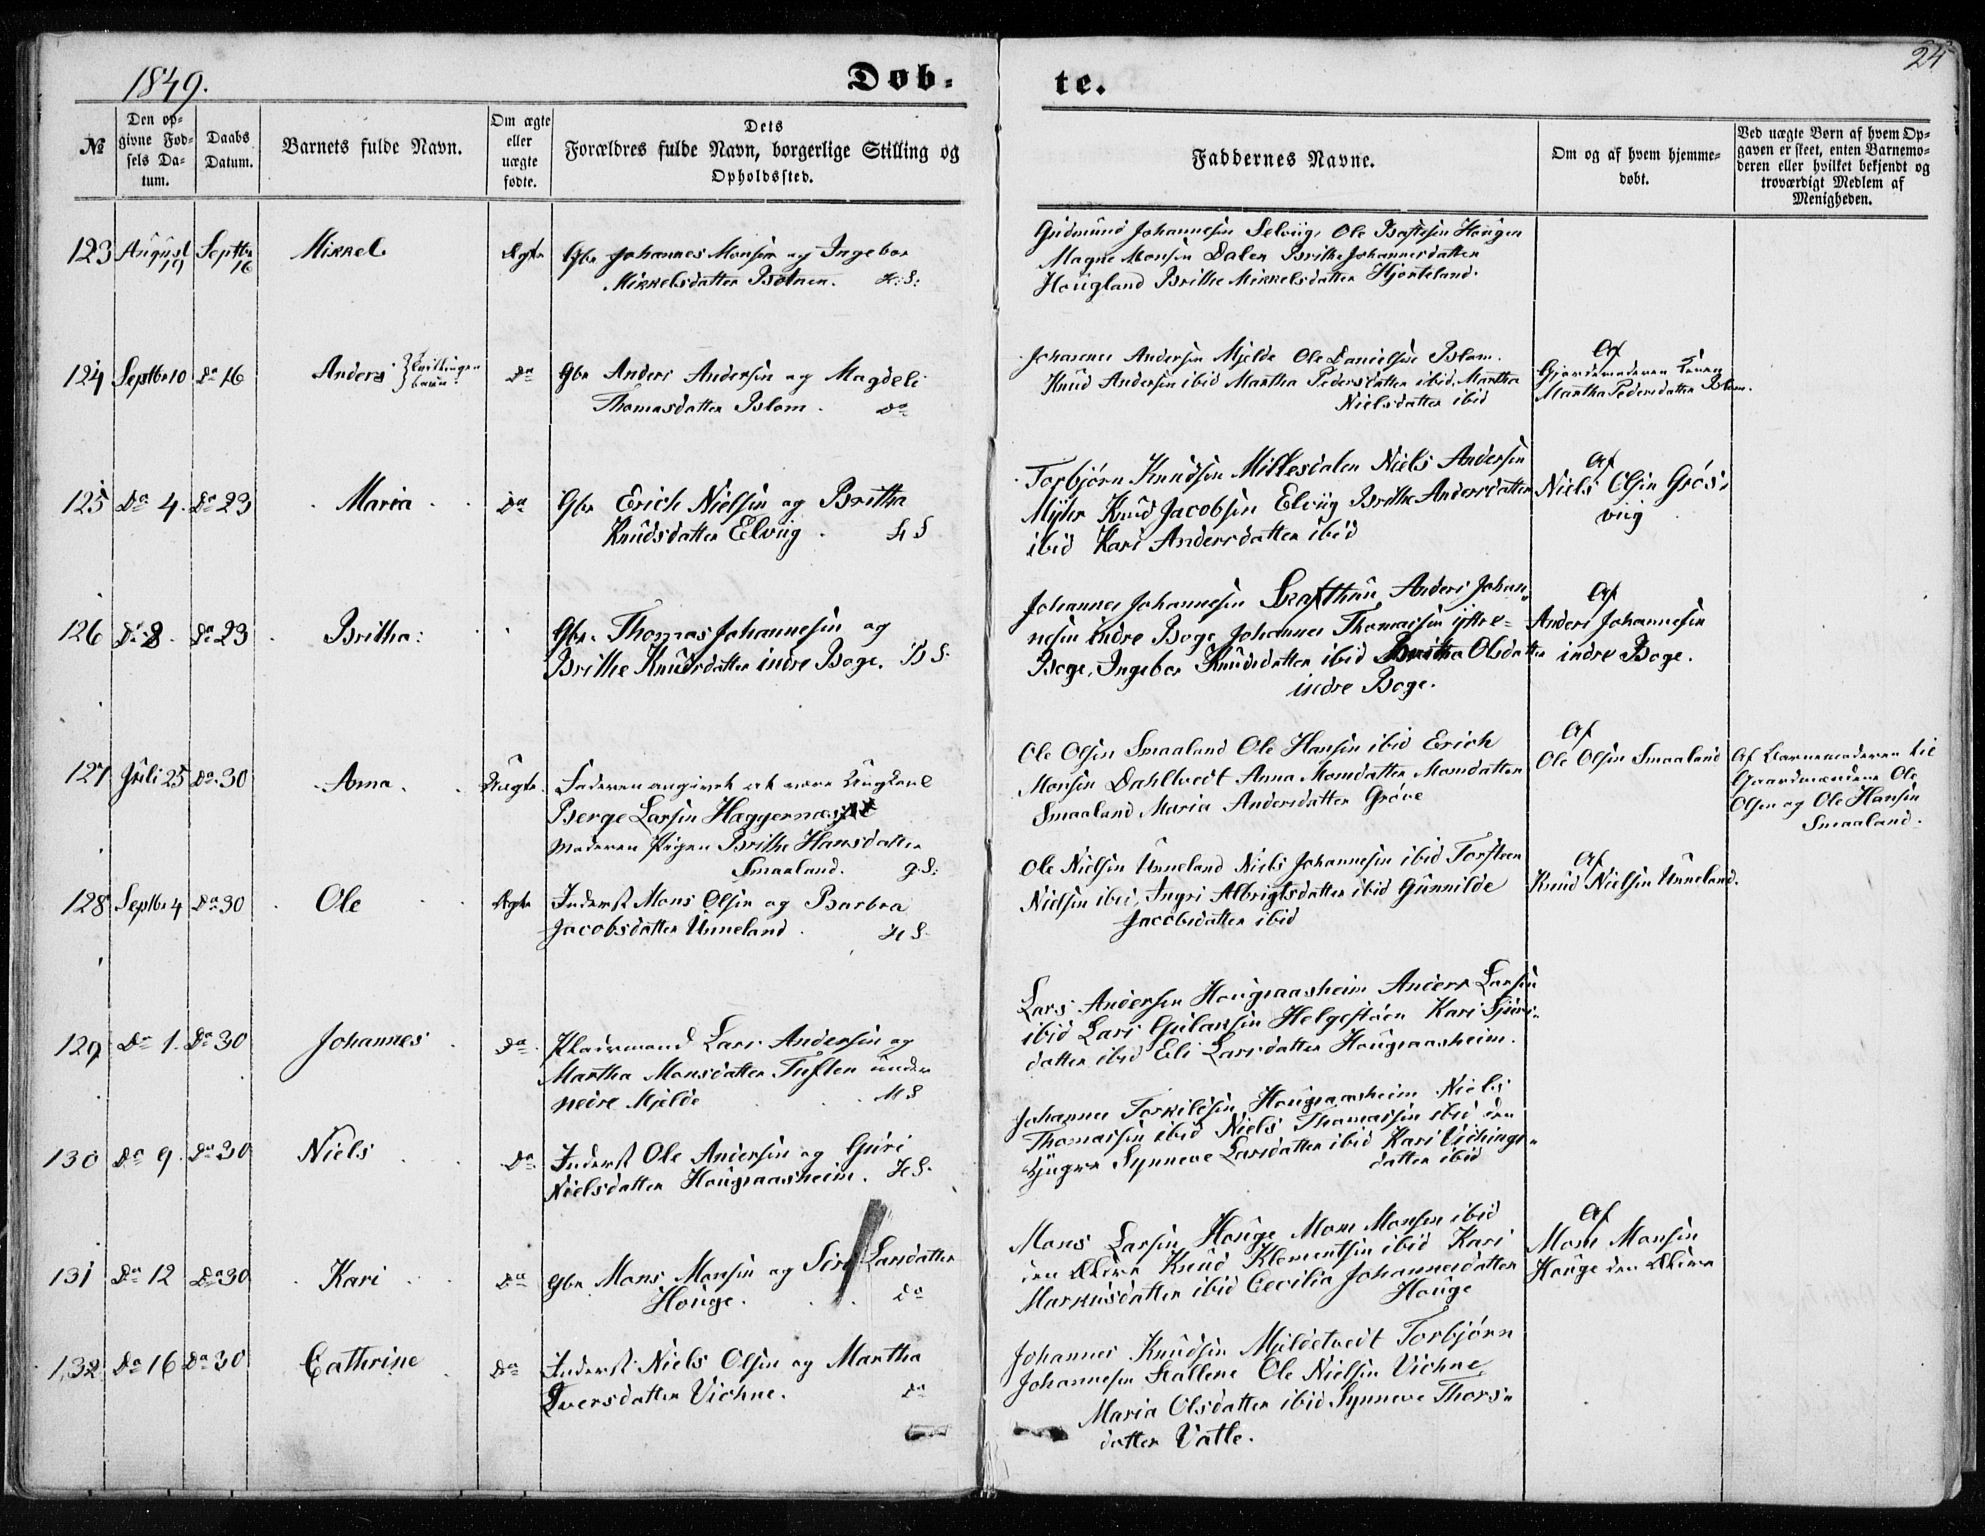 1849.
Døb-
te.
24
№
Den op-
givne Fød-
sels Da-
tum.
Daabs
Datum.
Barnets fulde Navn.
Om ægte
eller
uægte
fødte.
Dets
Forældres fulde Navn, borgerlige Stilling og
Opholdssted.
Faddernes Navne.
Om og af hvem hjemme-
døbt.
Ved uægte Børn af hvem Op-
gaven er skeet, enten Barnemo-
deren eller hvilket bekjendt og
troværdigt Medlem af
Menigheden.
123 August 19 Septbr 16 Mikkel Ægte Gbr Johannes Monsen og Ingebor
Mikkelsdatter Botnen. H: S:
Gudmund Johannesen Selviig, Ole Haugen
Magne Monsen Dalen Brithe Johannesdatter
Hougland Brithe Mikkelsdatter Hjorteland.
124 Septbr 10 Do 16 Anders Tvillinge
barn Do Gbr Anders Andersen og Magdeli
Thomasdatter Blom. Do
Johannes Andersen Mjelde Ole Danielsen Blom.
Knud Andersen ibid Martha Pedersdatter ibid, Martha
Nielsdatter ibid
Af
Gjordemoderen
Martha Pedersdatter Blom.
125 Do 4. Do 23 Maria Do Gbr Erich Nielsen og Britha
Knudsdatter Elviig. H S
Torbjørn Knudsen Millesdalen Niels Andersen
Myhr Knud Jacobsen Elviig Brithe Andersdatter
ibid Kari Andersdatter ibid
Af
Niels Olsen Grøs-
viig
126 Do 8. Do 23 Britha: Gbr. Thomas Johannesen og
Brithe Knudsdatter indre Boge. B S.
Johannes Johannesen Skafthun, Anders Johan-
nesen indre Boge Johannes Thomassen ijttre-
Boge, Ingebor Knudsdatter ibid Britha Olsdatter
indre Boge.
Af
Anders Johannesen
indre Boge.
127 Juli 25 Do 30 Anna. Uægte. Faderen angivet at være Ungkarl
Berge Larsen Haggernæs
Moderen Pigen Brithe Hansdatter
Smaaland. g.S:
Ole Olsen Smaaland Ole Hansen ibid Erich
Monsen Dahltvedt Anna Monsdatter Monsdatter
Smaaland Maria Andersdatter Grove
Af
Ole Olsen Smaaland
Af Barnemoderen til
Gaardmændene Ole
Olsen og Ole Hansen
Smaaland.
128 Septbr 4 Do 30 Ole Ægte Inderst Mons Olsen og Barbra
Jacobsdatter Unneland. H S.
Ole Nielsen Unneland Niels Johannesen ibid Torsteen
Nielsen ibid, Ingri Albrigtsdatter ibid Gunnilde
Jacobsdatter ibid
Af
Knud Nielsen Unneland.
129 Do 1. Do 30 Johannes Do Pladsmand Lars Andersen og
Martha Monsdatter Tuften under
nedre Mjelde H S
Lars Andersen Hougsaasheim Anders Larsen
ibid Lars Helgesteen Kari Sjurs-
datter ibid Eli Larsdatter Hougsaasheim.
130 Do 9. Do 30 Niels Do Inderst Ole Andersen og Guri
Nielsdatter Hougsaasheim. H S.
Johannes Torkilsen Hougsaasheim Niels
Thomassen ibid Niels Thomassen ibid den
yngre Synneve Larsdatter ibid Kari Vichings-
datter ibid
131 Do 12 Do 30 Kari Do Gbr Mons Monsen og Siri Larsdatter
Houge. Do
Mons Larsen Houge Mons Monsen ibid
den Ældre Knud Klementsen ibid Kari
Markusdatter ibid Cecilia Johannesdatter
Houge
Af
Mons Monsen
Houge den Ældre
132 Do 16 Do 30 Cathrine Do Inderst Niels Olsen og Martha
Iversdatter Vichne. Do
Johannes Knudsen Mjeldetvedt Torbjørn
Johannesen Ole Nielsen Vichne
Maria Olsdatter ibid Synneve Thors-
datter Vatle.